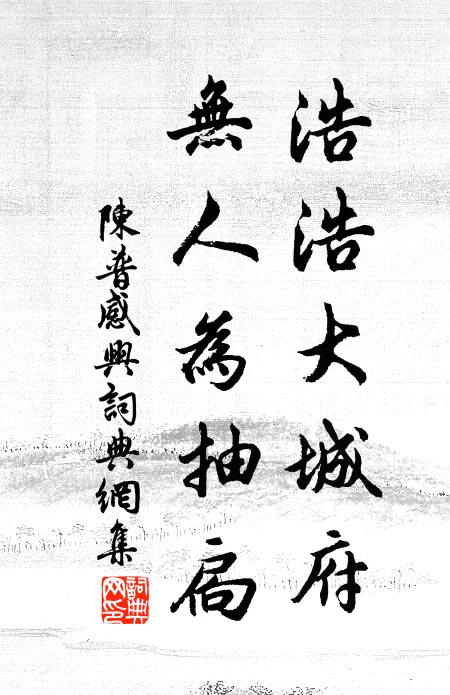 浩浩大城府
無人為抽扃
陳普感興詞典網集
詞典網印